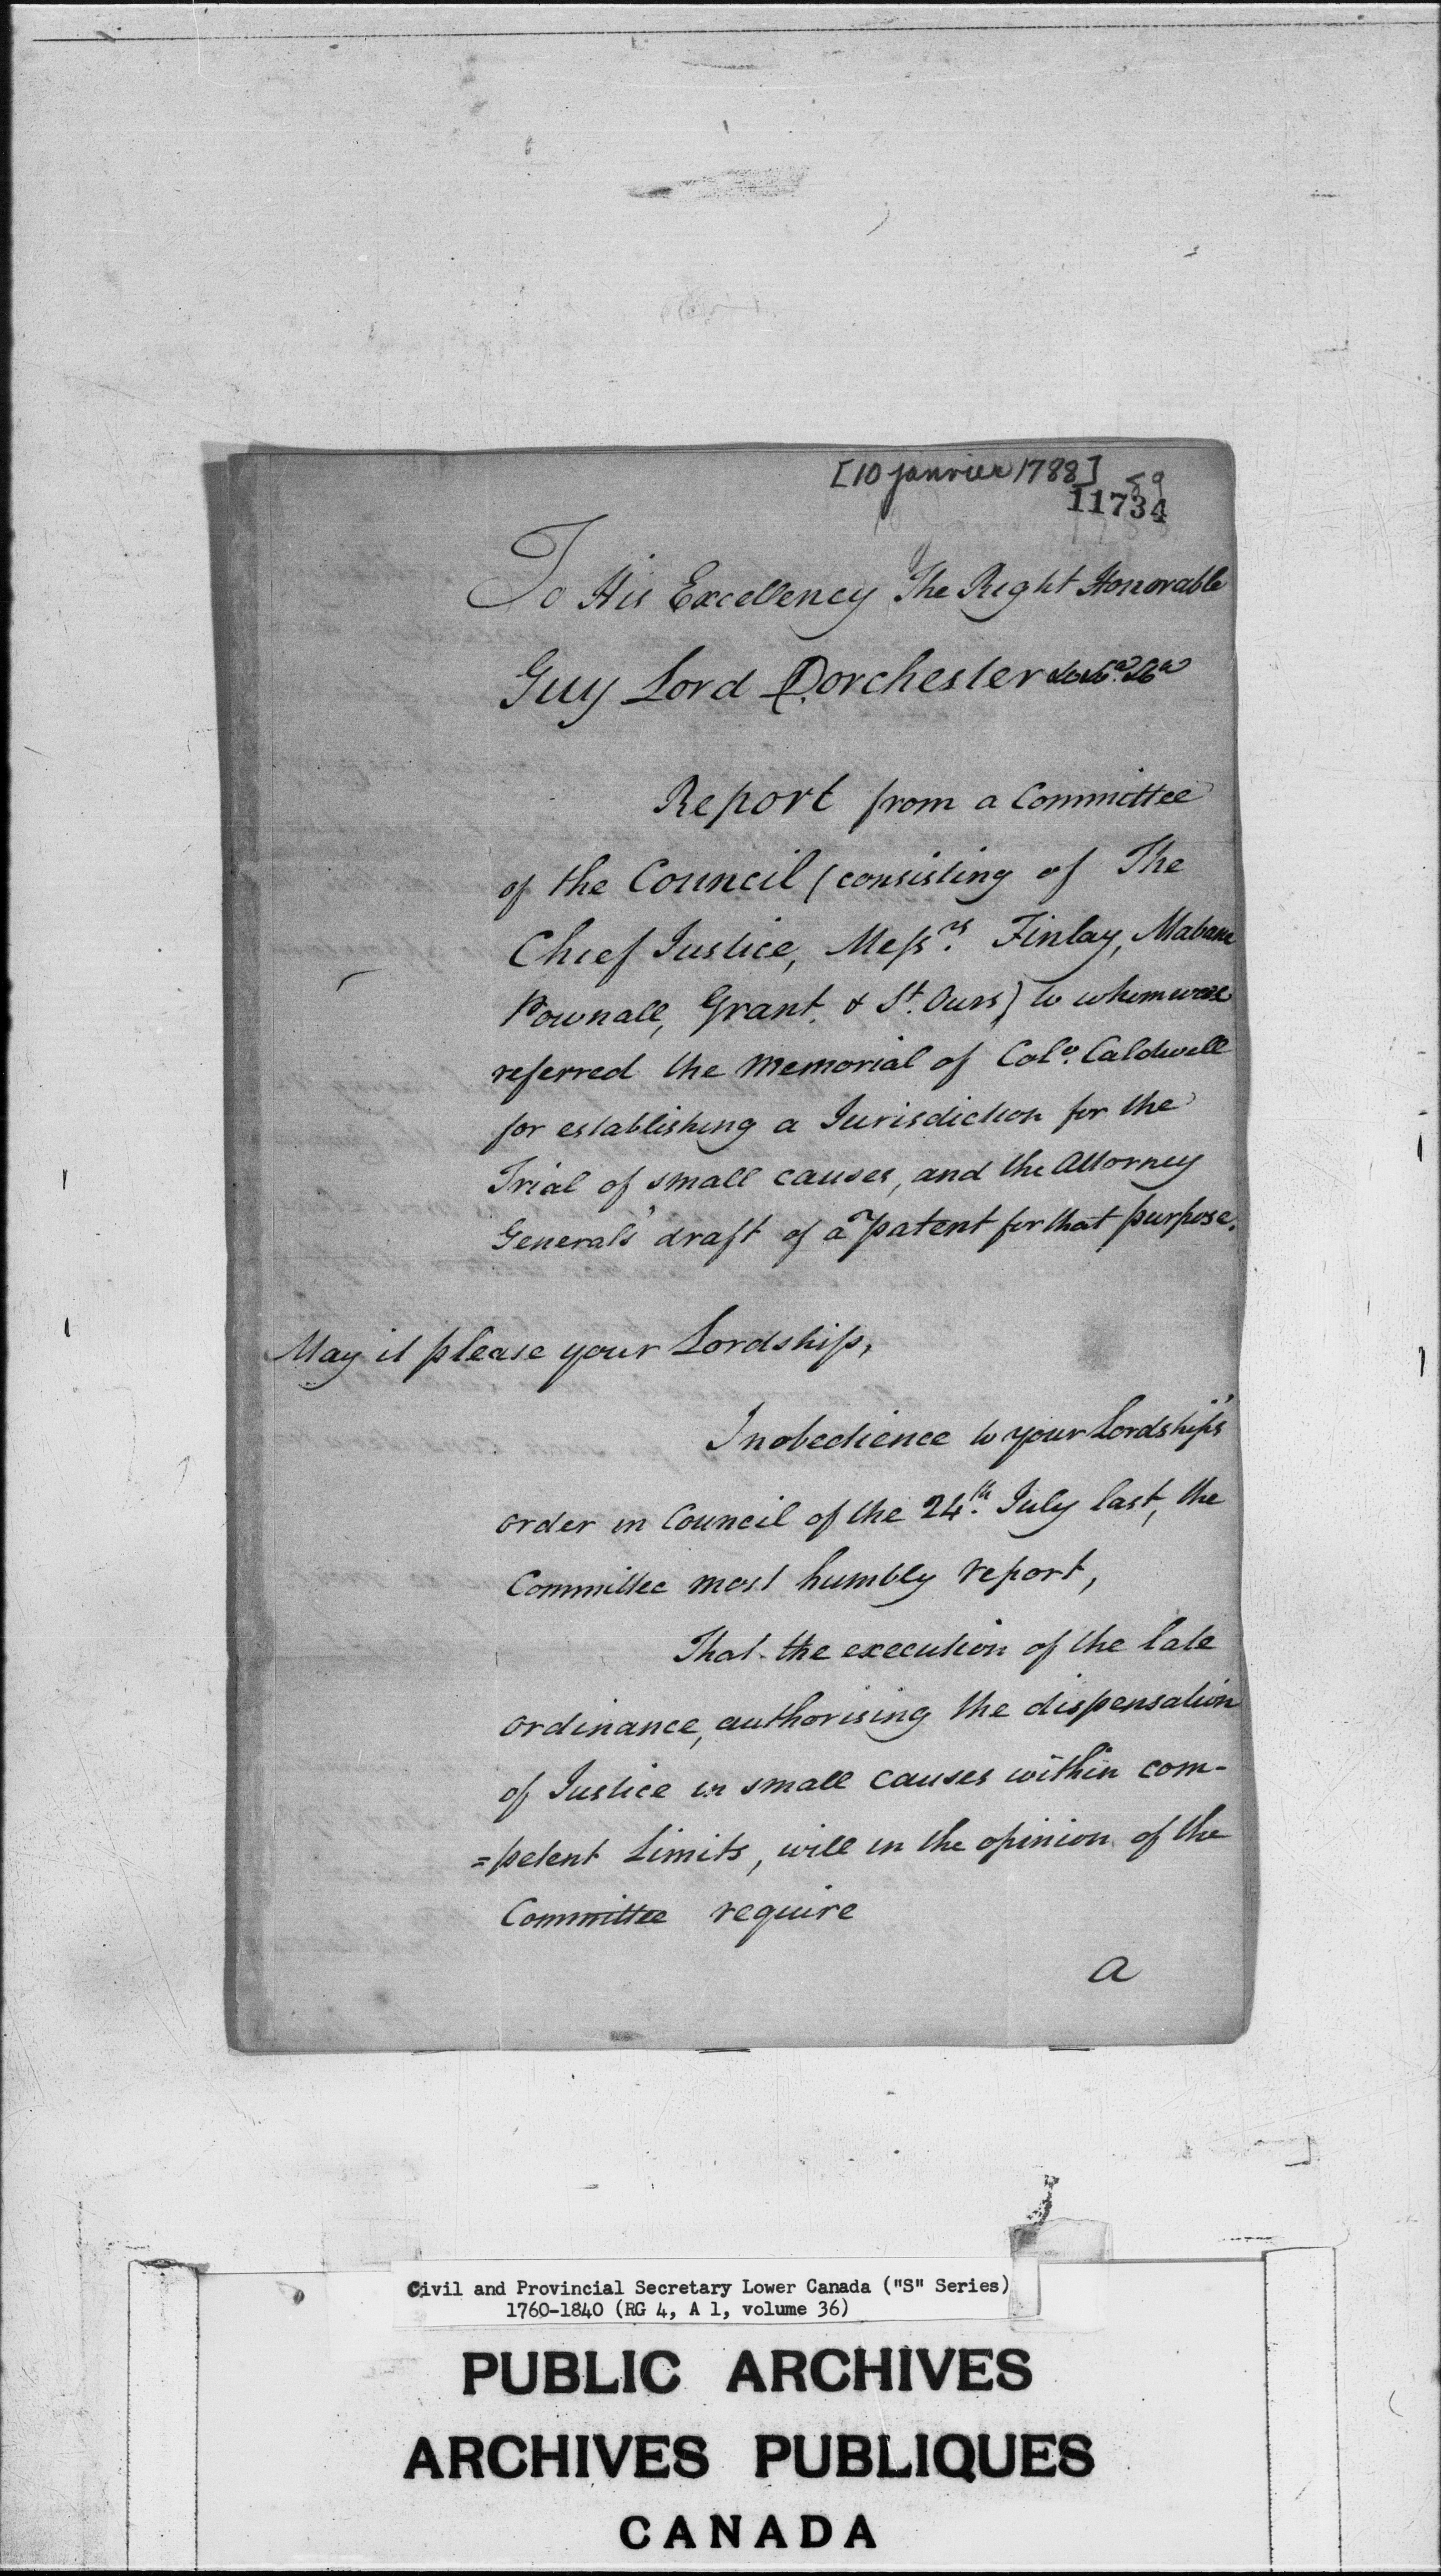 [10 janvier 1788] 59
11734
To His Excellency The Right Honorable
Guy Lord Dorchester &c &ca. &ca
Report from a Committee
of the Council (consisting of The
Chief Justice, Messrs. Finlay, Mabane
Pownall, Grant. & St. Ours) to whom were
referred the Memorial of Colo. Caldwell
for establishing a Jurisdiction for the
Trial of small causes, and the Attorney
General's draft of a patent for that purpose.
May it please your Lordship,
In obedience to your Lordship's
order in Council of the 24th. July last, the
Committee most humbly report,
That the execution of the late
Ordinance, authorising the dispensation
of Justice in small causes within com-
=petent Limits, will in the opinion of the
Committee require
a
Civil and Provincial Secretary Lower Canada ("S" Series)
1760-1840 (RG 4, A 1, volume 36)
PUBLIC ARCHIVES
ARCHIVES PUBLIQUES
CANADA